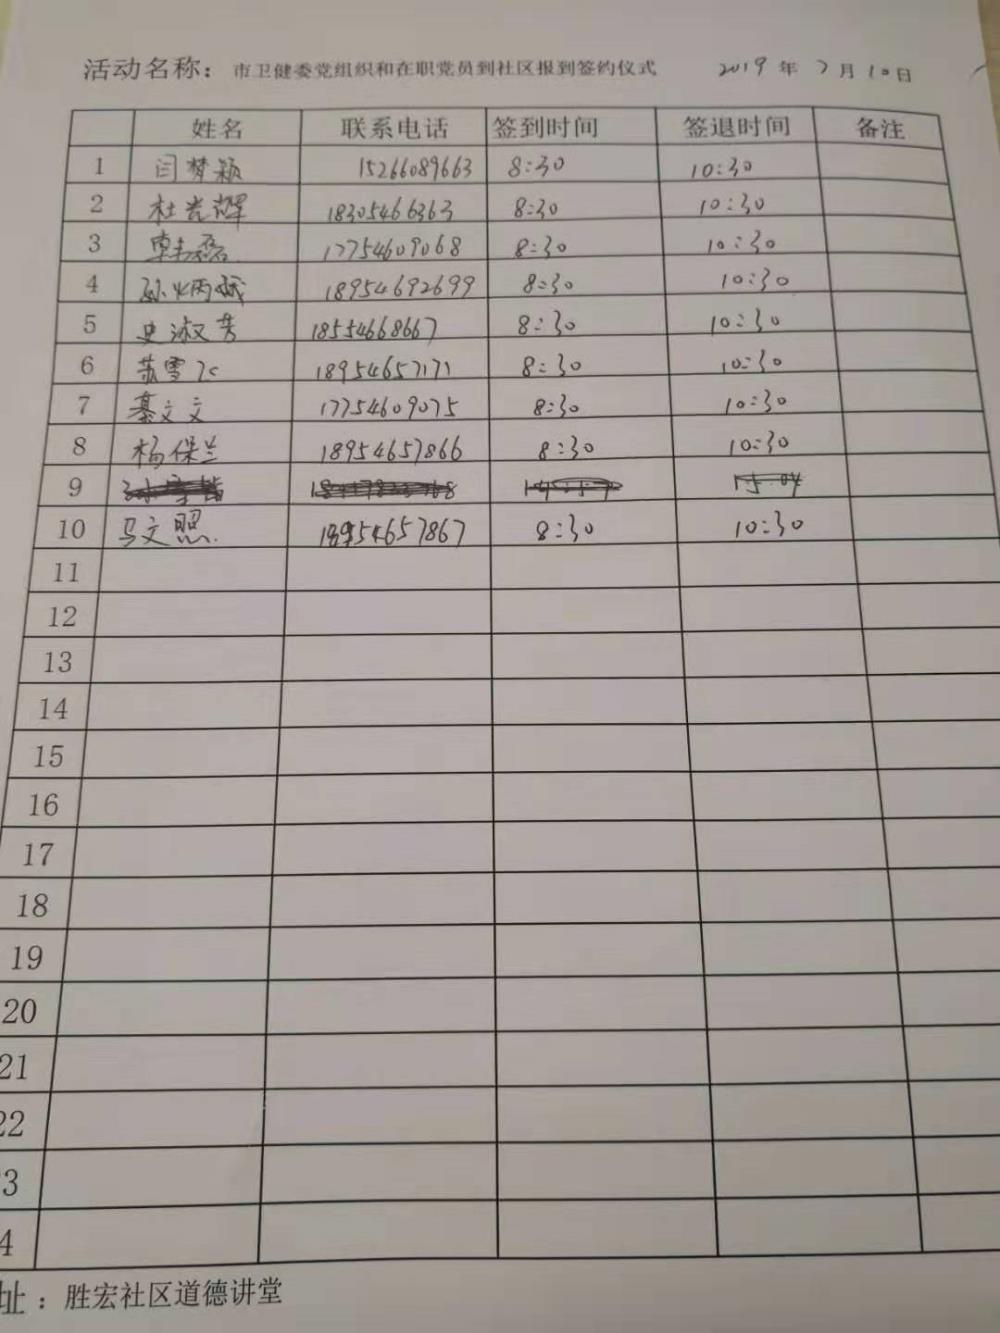 活动名称：市卫健委党组织和在职党员到社区报到签约仪式 2019年7月10日
姓名 联系电话 签到时间 签退时间 备注
1 闫梦颖 15266089663 8:30 10:30
2 杜光辉 18305466363 8:30 10:30
3 韩磊 17754609068 8:30 10:30
4 18954692699 8:30 10:30
5 史淑芳 18554668667 8:30 10:30
6 苏雪飞 18954657171 8:30 10:30
7 綦文文 17754609075 8:30 10:30
8 杨保兰 18954657866 8:30 10:30
9
10 马文照 18954657867 8:30 10:30
11
12
13
14
15
16
17
18
19
20
21
22
3
4
址：胜宏社区道德讲堂